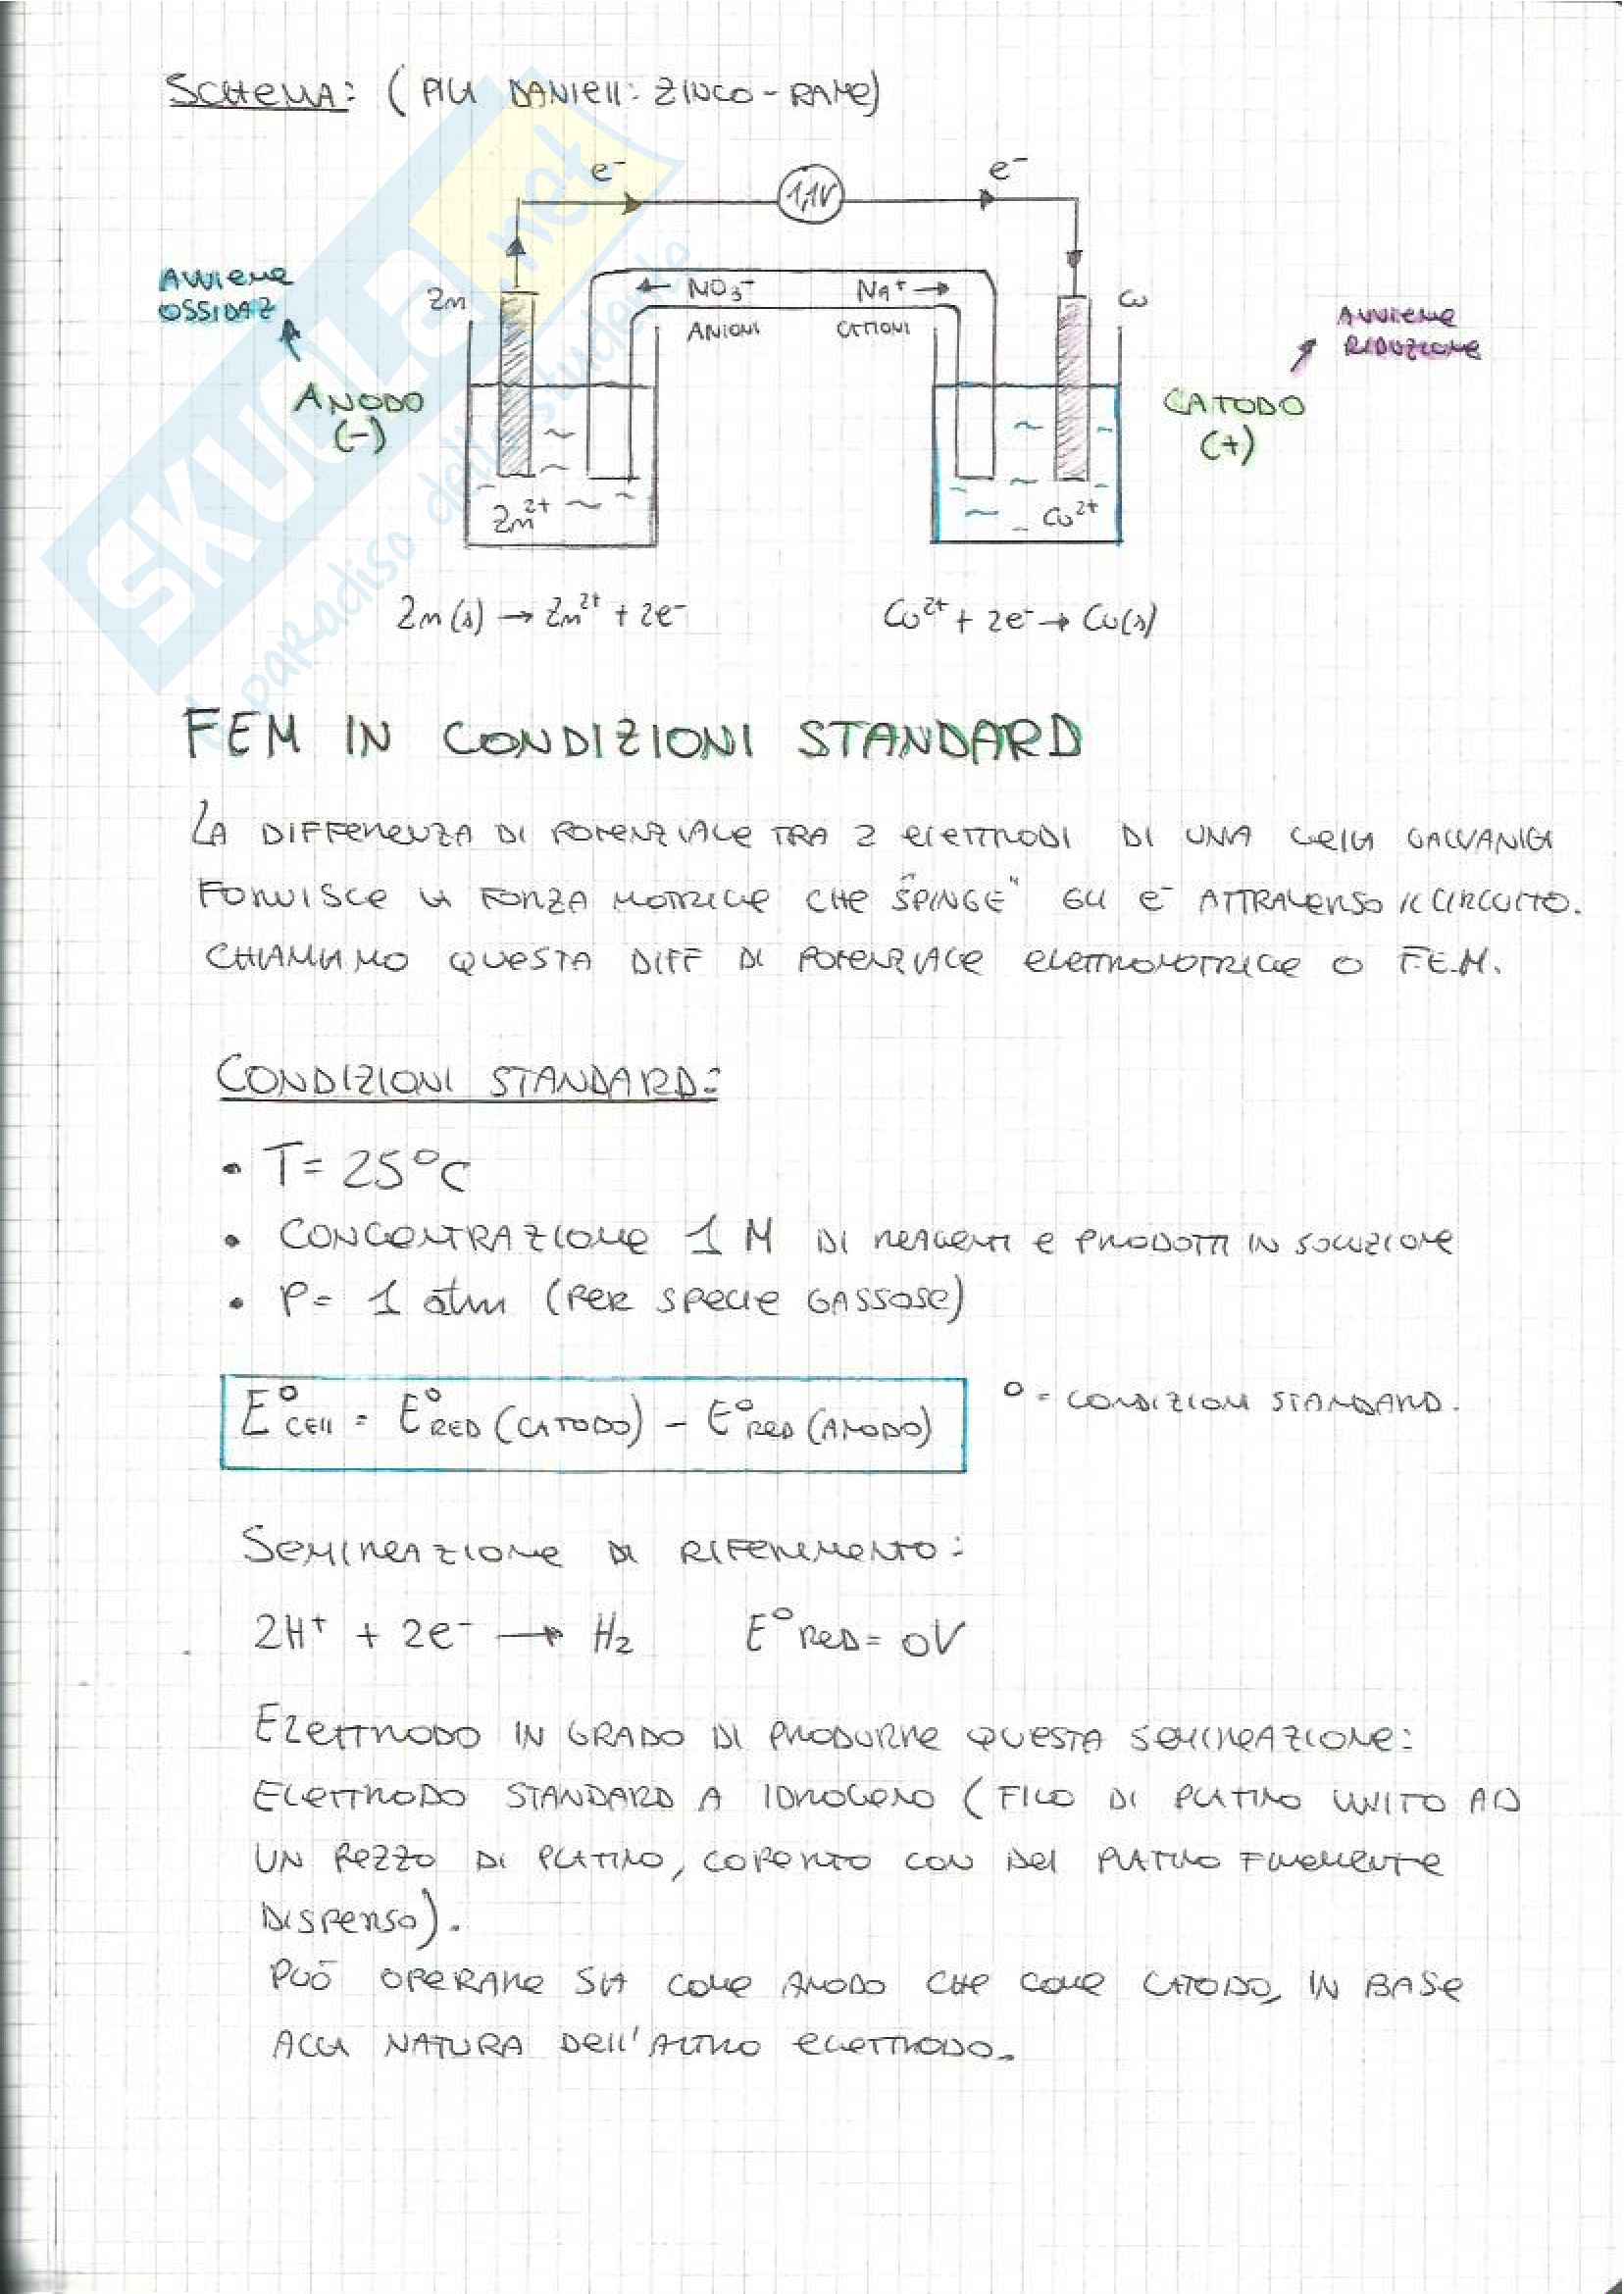 SCHEMA: (PILA DANIELL: ZINCO-RAME)
e⁻ 1,1V e⁻
AVVIENE
OSSIDAZ
Zn ← NO₃⁻ Na⁺ → Cu
ANIONI CATIONI
AVVIENE
RIDUZIONE
ANODO
(-)
CATODO
(+)
Zn²⁺ Cu²⁺
Zn(s) → Zn²⁺ + 2e⁻ Cu²⁺ + 2e⁻ → Cu(s)
FEM IN CONDIZIONI STANDARD
LA DIFFERENZA DI POTENZIALE TRA 2 ELETTRODI DI UNA CELLA GALVANICA
FORNISCE LA FORZA MOTRICE CHE "SPINGE" GLI e⁻ ATTRAVERSO IL CIRCUITO.
CHIAMIAMO QUESTA DIFF DI POTENZIALE ELETTROMOTRICE O F.E.M.
CONDIZIONI STANDARD:
• T= 25°C
• CONCENTRAZIONE 1 M DI REAGENTI E PRODOTTI IN SOLUZIONE
• P= 1 atm (PER SPECIE GASSOSE)
E°CELL = E°RED (CATODO) - E°RED (ANODO) ° = CONDIZIONI STANDARD.
SEMIREAZIONE DI RIFERIMENTO:
2H⁺ + 2e⁻ → H₂ E°RED = 0V
ELETTRODO IN GRADO DI PRODURRE QUESTA SEMIREAZIONE:
ELETTRODO STANDARD A IDROGENO (FILO DI PLATINO UNITO AD
UN PEZZO DI PLATINO, COPERTO CON DEL PLATINO FINEMENTE
DISPERSO).
PUÒ OPERARE SIA COME ANODO CHE COME CATODO, IN BASE
ALLA NATURA DELL'ALTRO ELETTRODO.
SKUOLA.net
paradiso dello studente